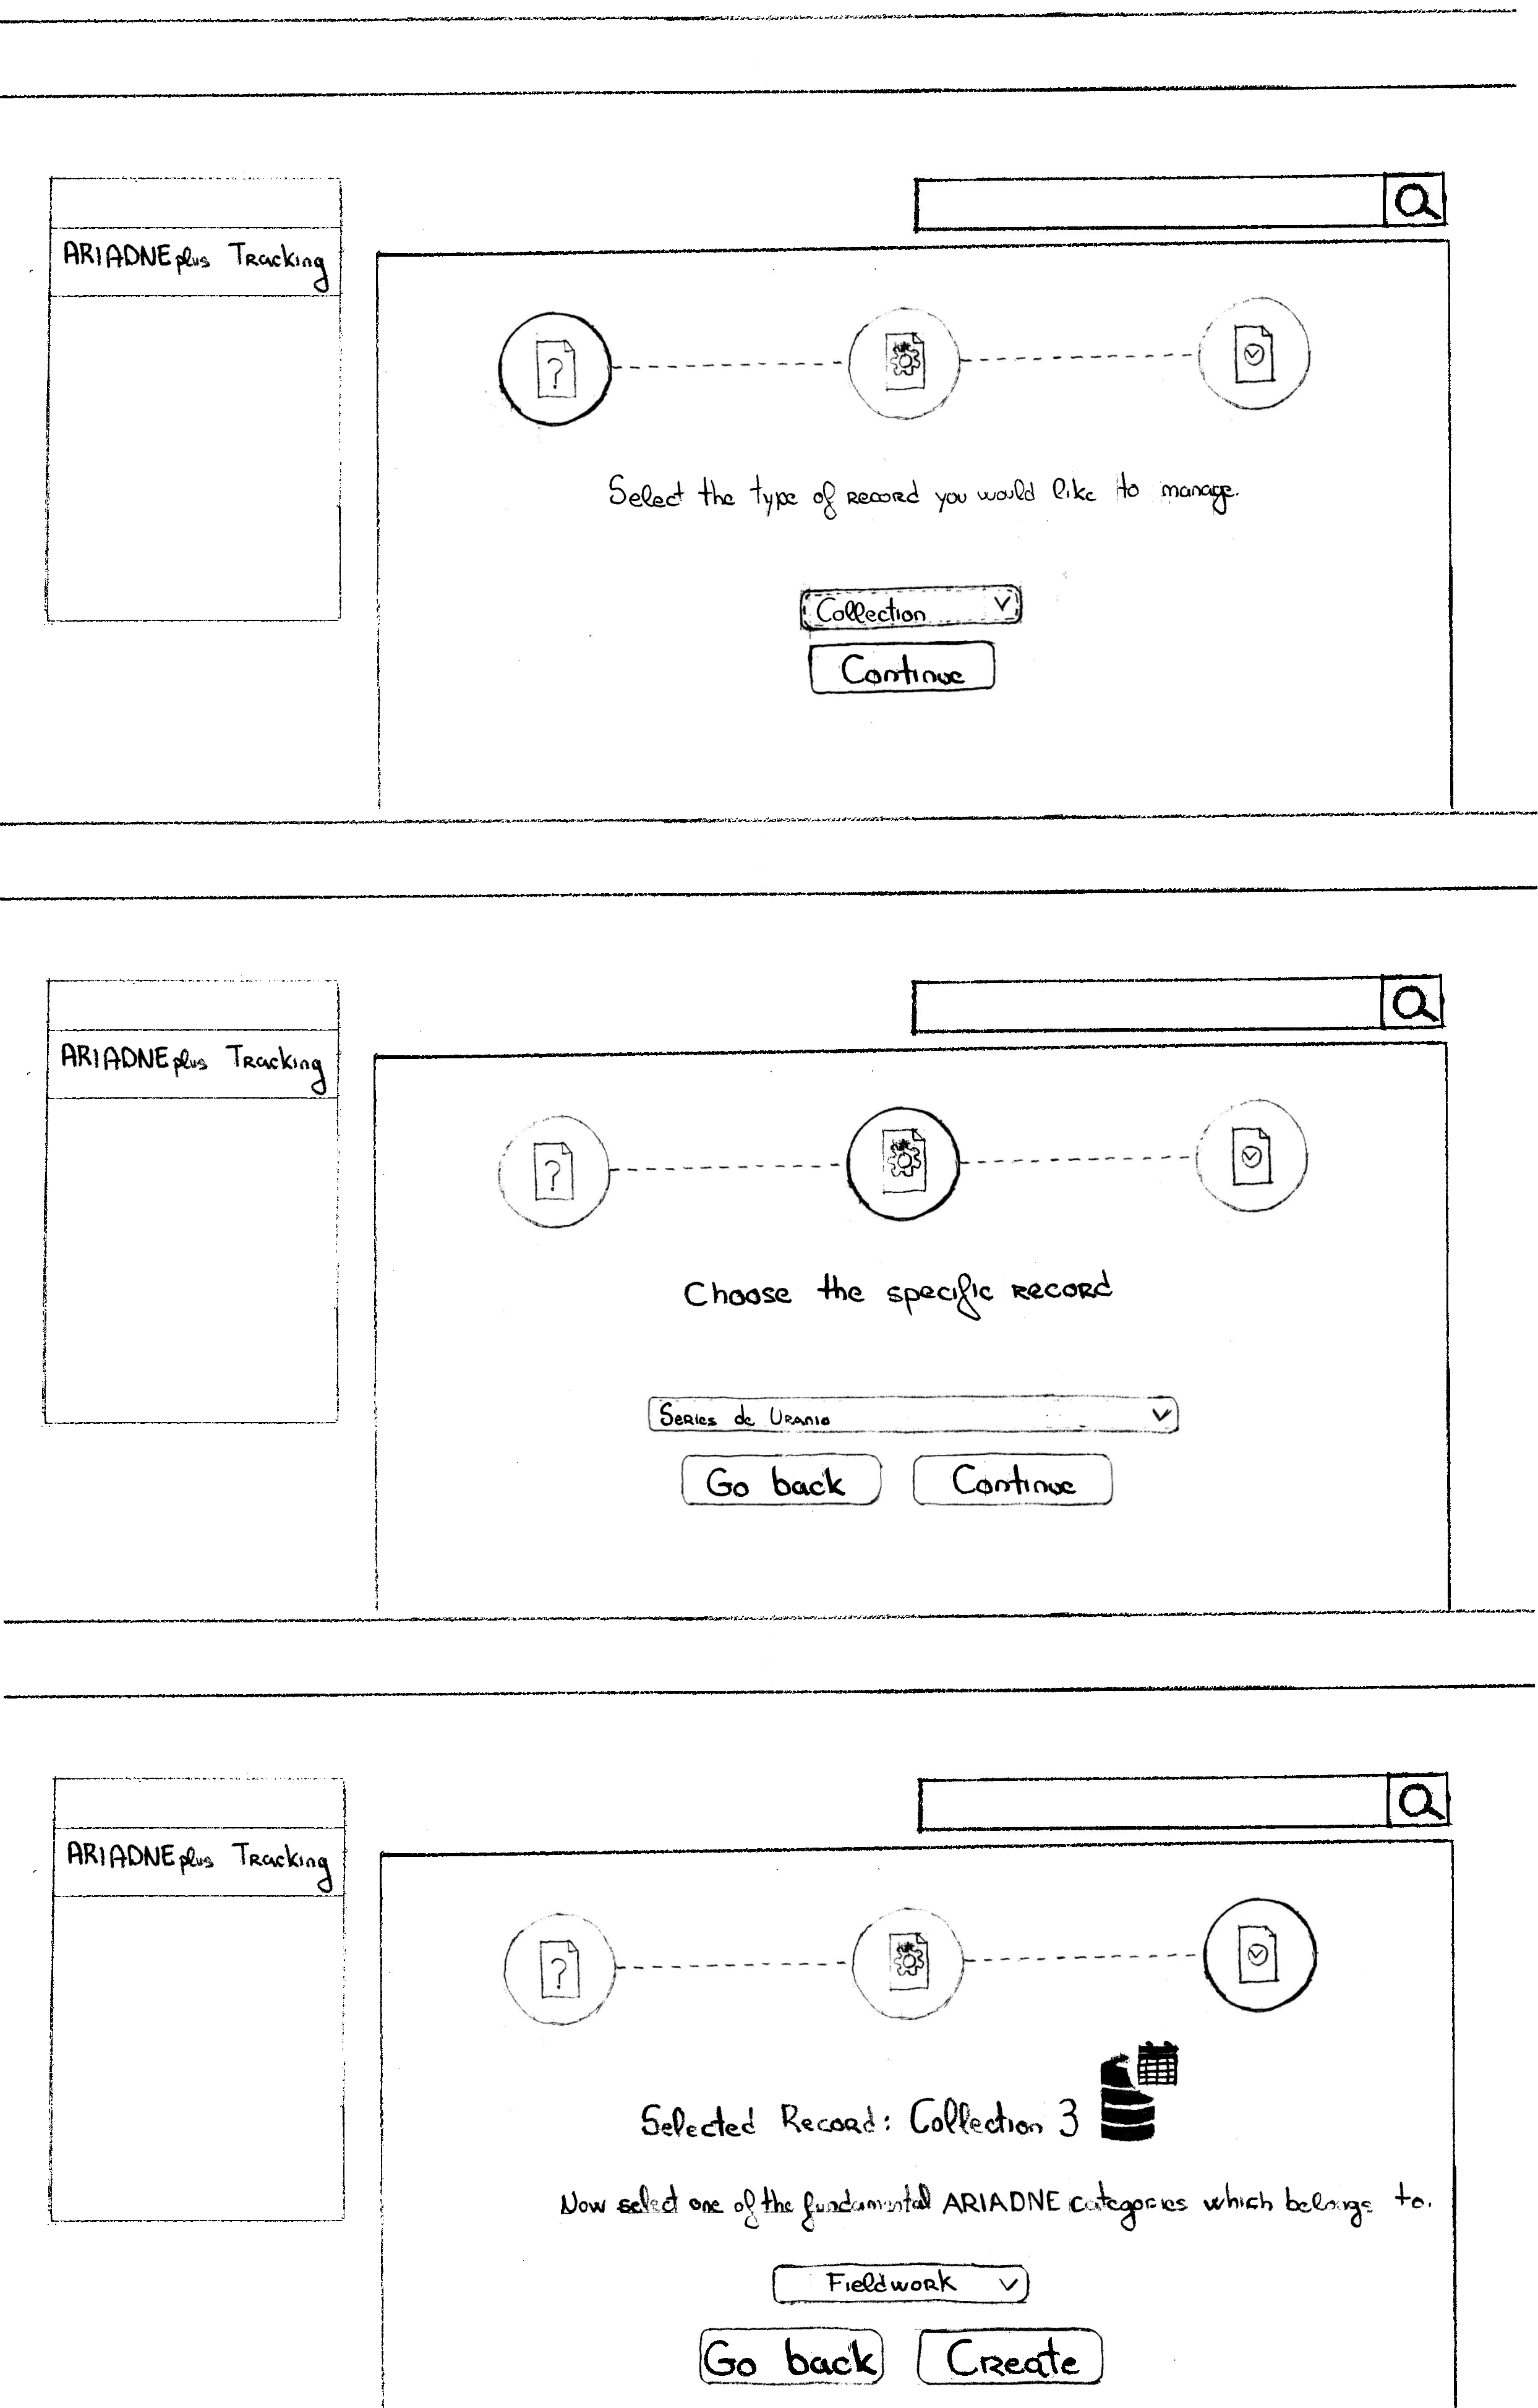 ARIADNEplus Tracking
Select the type of record you would like to manage.
Collection
Continue
ARIADNEplus Tracking
Choose the specific record
Series de Uranio
Go back Continue
ARIADNEplus Tracking
Selected Record: Collection 3
Now select one of the fundamental ARIADNE categories which belongs to.
Fieldwork
Go back Create